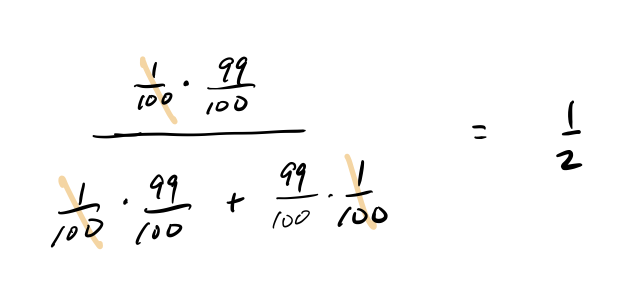 1/100 · 99/100
1/100 · 99/100 + 99/100 · 1/100 = 1/2